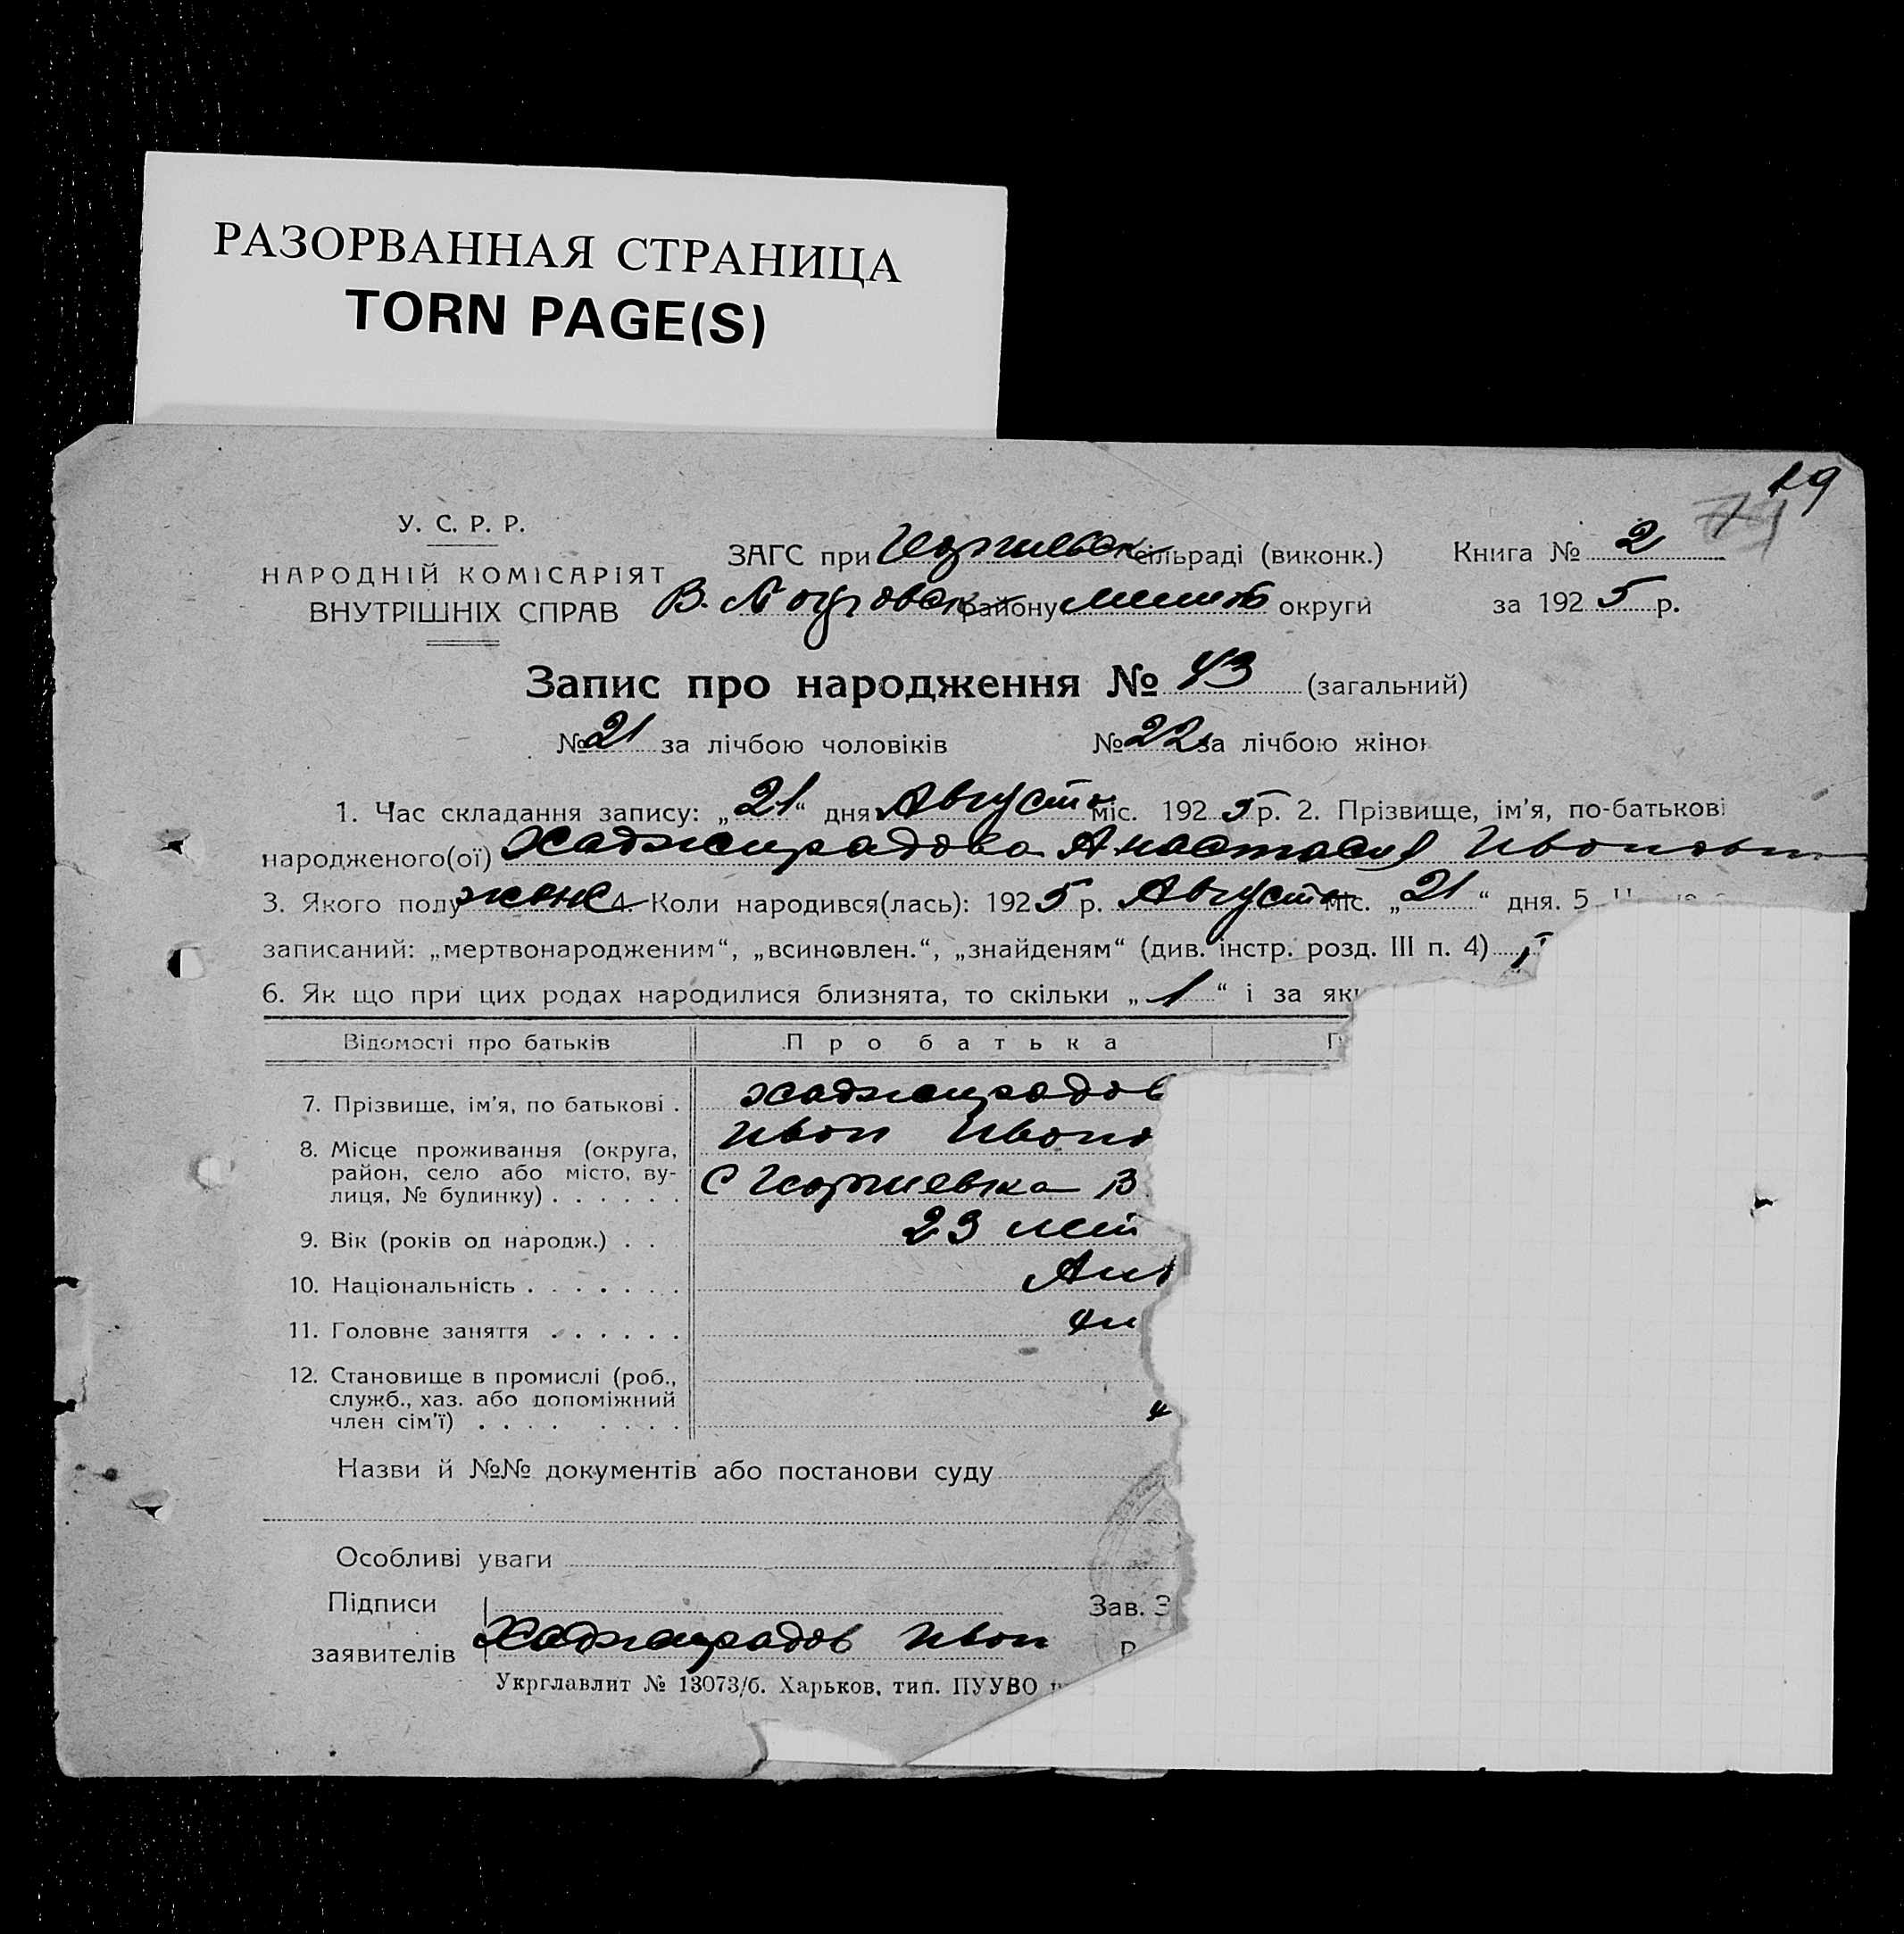 РАЗОРВАННАЯ СТРАНИЦА
TORN PAGE(S)
19
71
У. С. Р. Р.
НАРОДНІЙ КОМІСАРІЯТ
ВНУТРІШНІХ СПРАВ
ЗАГС при сільраді (виконк.)
Книга № 2
В. району округи
за 1925 р.
Запис про народження № 43 (загальний)
№ 21 за лічбою чоловіків
№ 22 за лічбою жінок
1. Час складання запису: „21“ дня Августа міс. 1925 р. 2. Прізвище, ім’я, по-батькові
народженого(ої) Анастасия
3. Якого полу женс 4. Коли народився(лась): 1925 р. Августа міс. „21“ дня. 5
записаний: „мертвонародженим“, „всиновлен.“, „знайденям“ (див. інстр. розд. III п. 4)
6. Як що при цих родах народилися близнята, то скільки „1“ і за як
Відомості про батьків
Про батька
7. Прізвище, ім’я, по батькові .
8. Місце проживання (округа,
район, село або місто, ву-
лиця, № будинку) . . . . . .
Иван Ивано
С В
9. Вік (років од народж.) . .
23 лет
10. Національність . . . . . . .
11. Головне заняття . . . . . .
12. Становище в промислі (роб.,
служб., хаз. або допоміжний
член сім’ї) . . . . . . . .
Назви й №№ документів або постанови суду
Особливі уваги
Підписи
заявителів
Иван
Зав. З
Укрглавлит № 13073/б. Харьков, тип. ПУУВО